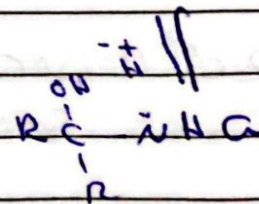 - +
H
OH
R C N̈ H G
R